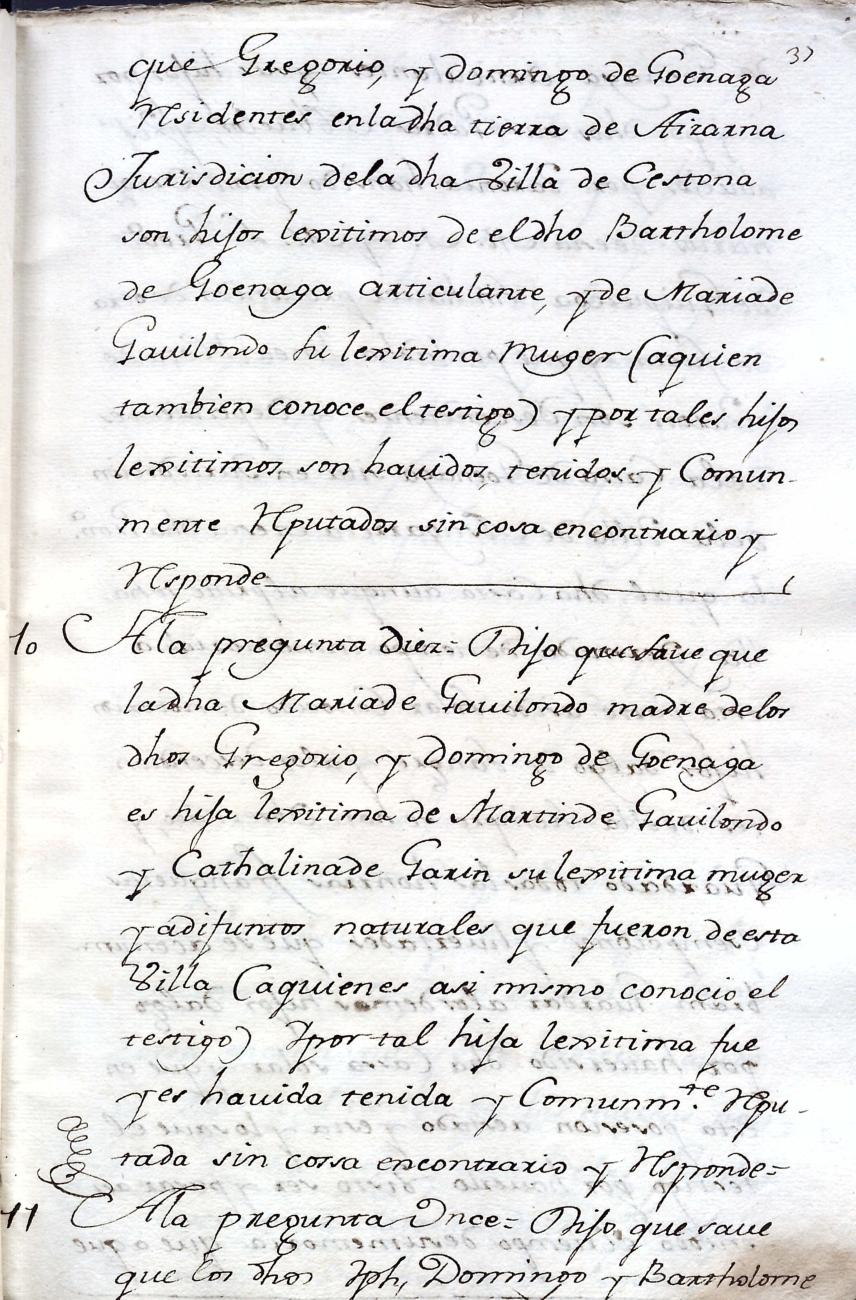 37
que Gregorio, y Domingo de Goenaga
Residentes enladha tierra de Aizarna
Jurisdicion deladha Villa de Cestona
son hijos lexitimos de eldho Bartholome
de Goenaga articulante, yde Mariade
Gauilondo su lexitima Muger (aquien
tambien conoce eltestigo) ypor tales hijos
lexitimos son hauidos, tenidos y Comun-
mente Reputados sin cosa encontrario y
Responde
10 Ala pregunta Diez= Dijo que saue que
ladha Mariade Gauilondo madre delos
dhos Gregorio, y Domingo de Goenaga
es hija lexitima de Martinde Gauilondo
y Cathalinade Garin sulexitima muger
yadifuntos naturales que fueron deesta
Villa (aquienes asi mismo conocio el
testigo) Ypor tal hija lexitima fue
yes hauida tenida y Comunm.te Repu-
tada sin cossa encontrario y Responde=
11 Ala pregunta Once= Dijo que saue
que los dhos Jph, Domingo y Bartholome